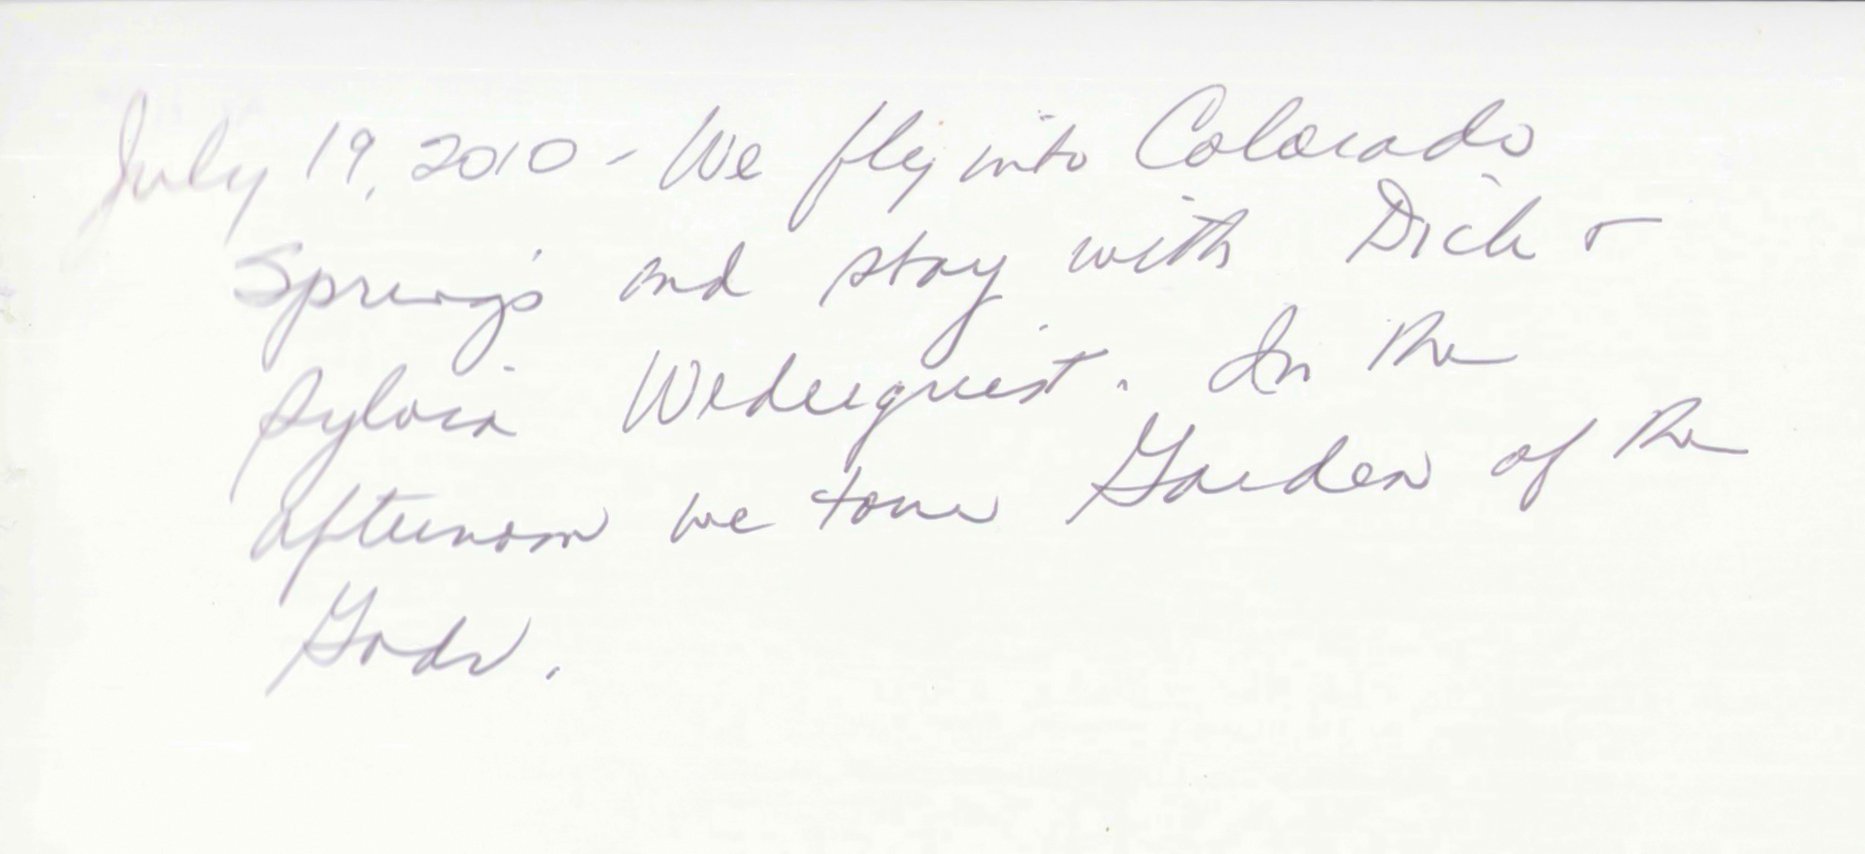 July 19, 2010 - We fly into Colorado
Springs and stay with Dick &
Sylvia Wederquist. In the
afternoon we tour Garden of the
Gods.